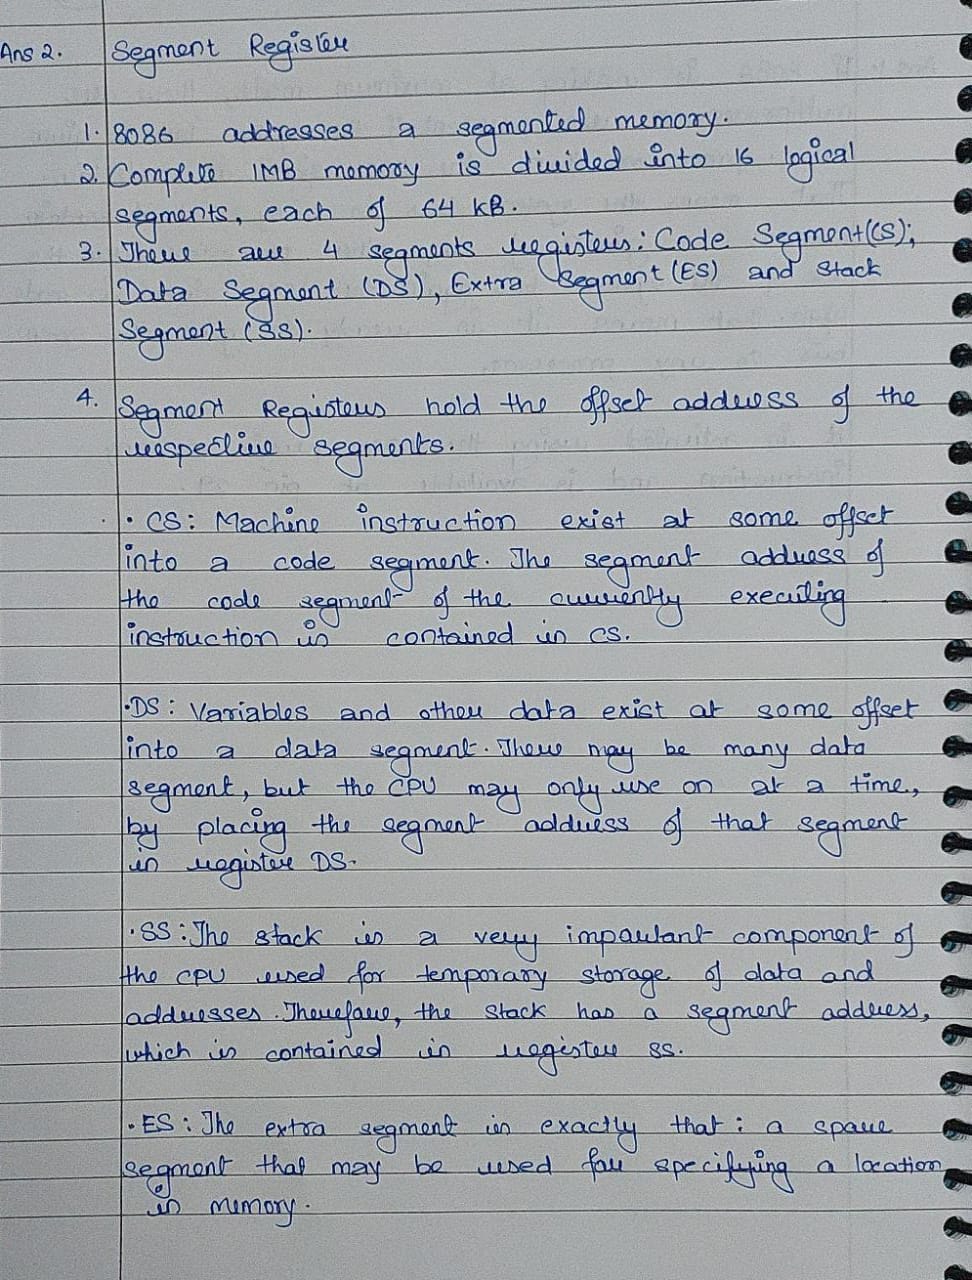 Ans 2. Segment Register
1. 8086 addresses a segmented memory.
2. Complete 1MB memory is divided into 16 logical
segments, each of 64 kB.
3. There are 4 segments registers: Code Segment (CS);
Data Segment (DS), Extra Segment (ES) and Stack
Segment (SS).
4. Segment Registers hold the offset address of the
respective segments.
• CS: Machine instruction exist at some offset
into a code segment. The segment address of
the code segment of the currently executing
instruction is contained in CS.
• DS: Variables and other data exist at some offset
into a data segment. There may be many data
segment, but the CPU may only use on at a time,
by placing the segment address of that segment
in register DS.
• SS: The stack is a very important component of
the CPU used for temporary storage of data and
addresses. Therefore, the stack has a segment address,
which is contained in register SS.
• ES: The extra segment is exactly that: a spare
segment that may be used for specifying a location
in memory.